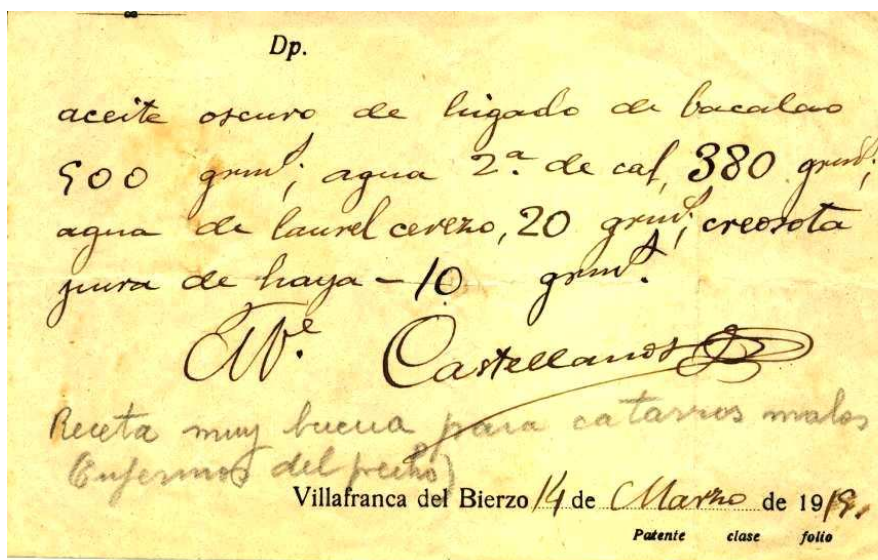 Dp.
aceite oscuro de higado de bacalao
500 grms; agua 2ª. de cal, 380 grms;
agua de laurel cerezo, 20 grms; creosota
pura de haya - 10 grms.
Castellanos
Receta muy buena para catarros malos
(Enfermos del pecho)
Villafranca del Bierzo 14 de Marzo de 1919.
Patente clase folio